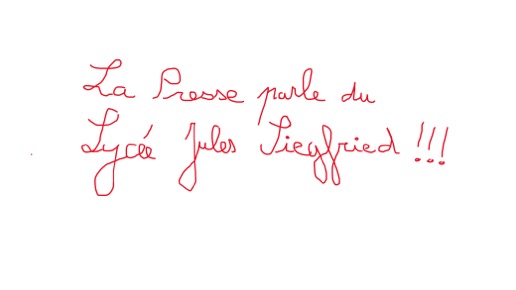 La Presse parle du
Lycée Jules Siegfried !!!